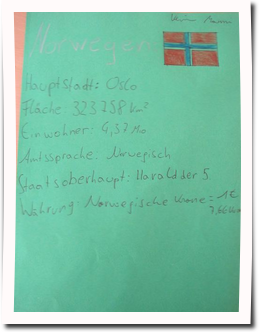 Norwegen
Hauptstadt: Oslo
Fläche: 323758 km²
Einwohner: 4,57 Mio
Amtssprache: Norwegisch
Staatsoberhaupt: Harald der 5.
Währung: Norwegische Krone = 1€